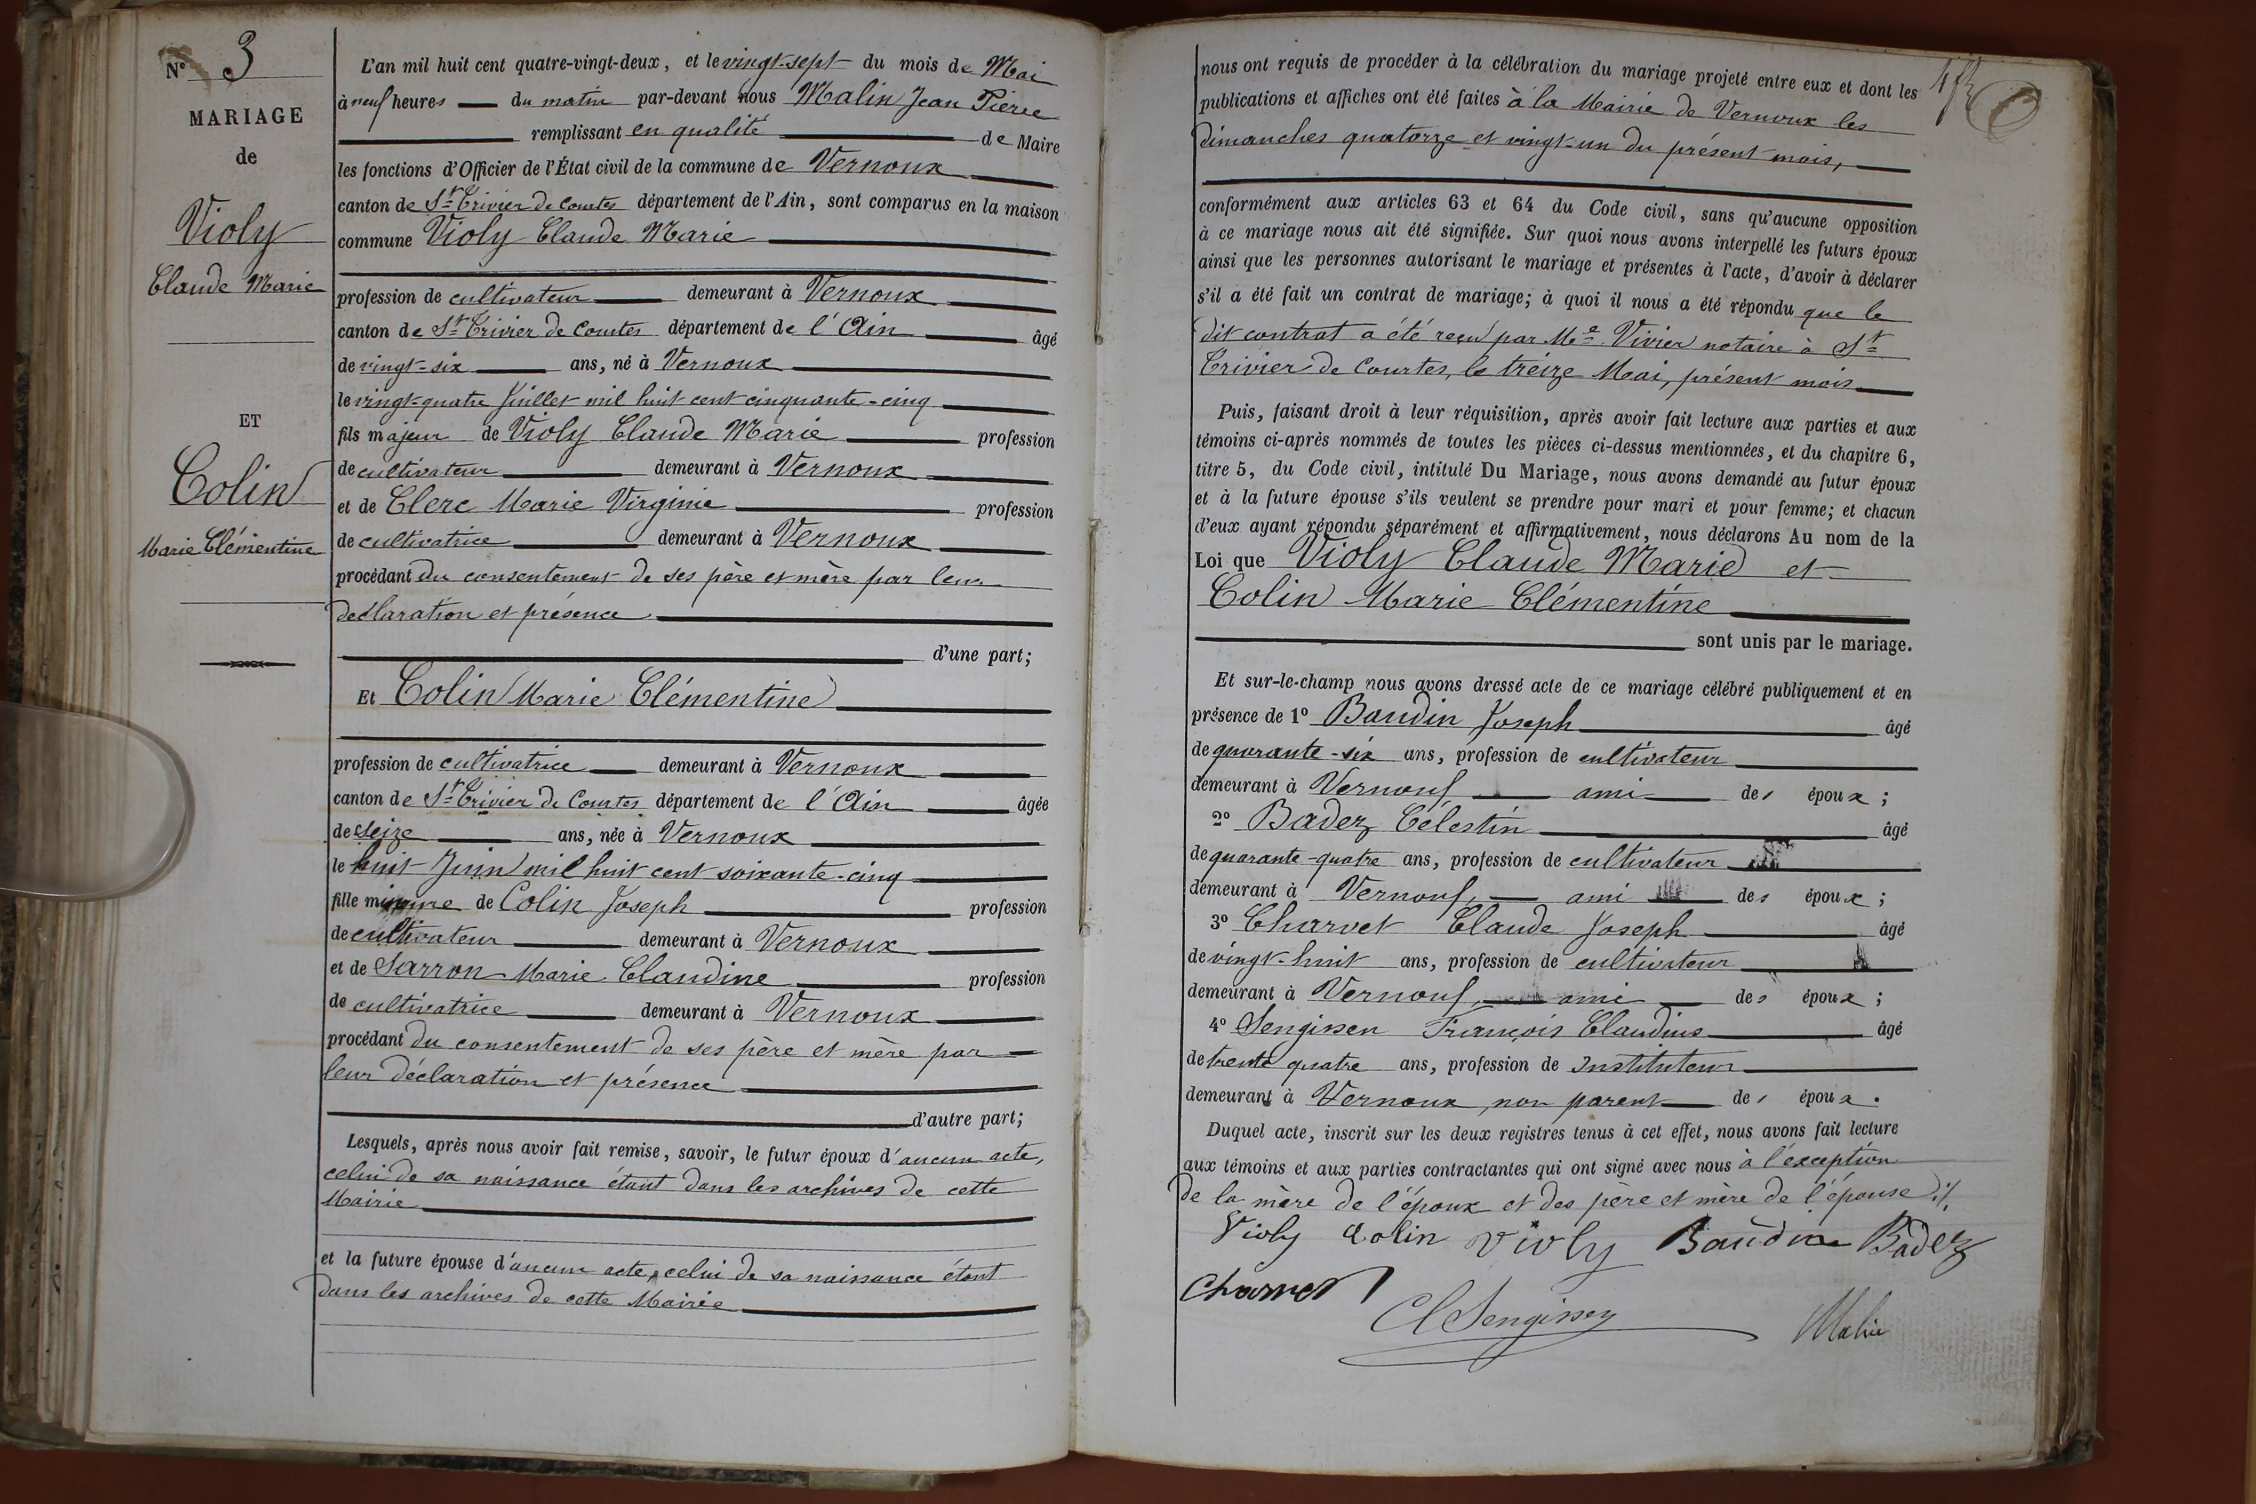 N° 3
MARIAGE
de
Violy
Claude Marie
ET
Colin
Marie Clémentine
L'an mil huit cent quatre-vingt-deux, et le vingt-sept du mois de Mai
à neuf heures du matin par-devant nous Malin Jean Pierre
remplissant en qualité de Maire
les fonctions d'Officier de l'État civil de la commune de Vernoux
canton de St Trivier de Courtes département de l'Ain, sont comparus en la maison
commune Violy Claude Marie
profession de cultivateur demeurant à Vernoux
canton de St Trivier de Courtes département de l'Ain âgé
de vingt-six ans, né à Vernoux
le vingt-quatre Juillet mil huit cent cinquante-cinq
fils majeur de Violy Claude Marie profession
de cultivateur demeurant à Vernoux
et de Clerc Marie Virginie profession
de cultivatrice demeurant à Vernoux
procédant du consentement de ses père et mère par leur
déclaration et présence
d'une part;
Et Colin Marie Clémentine
profession de cultivatrice demeurant à Vernoux
canton de St Trivier de Courtes département de l'Ain âgée
de seize ans, née à Vernoux
le huit Juin mil huit cent soixante-cinq
fille mineure de Colin Joseph profession
de cultivateur demeurant à Vernoux
et de Sarron Marie Claudine profession
de cultivatrice demeurant à Vernoux
procédant du consentement de ses père et mère par
leur déclaration et présence
d'autre part;
Lesquels, après nous avoir fait remise, savoir, le futur époux d'aucun acte,
celui de sa naissance étant dans les archives de cette
Mairie
et la future épouse d'aucun acte, celui de sa naissance étant
dans les archives de cette Mairie
nous ont requis de procéder à la célébration du mariage projeté entre eux et dont les
publications et affiches ont été faites à la Mairie de Vernoux les
dimanches quatorze et vingt-un du présent mois,
conformément aux articles 63 et 64 du Code civil, sans qu'aucune opposition
à ce mariage nous ait été signifiée. Sur quoi nous avons interpellé les futurs époux
ainsi que les personnes autorisant le mariage et présentes à l'acte, d'avoir à déclarer
s'il a été fait un contrat de mariage; à quoi il nous a été répondu que le
dit contrat a été reçu par Me Vivier notaire à St
Trivier de Courtes, le treize Mai, présent mois
Puis, faisant droit à leur réquisition, après avoir fait lecture aux parties et aux
témoins ci-après nommés de toutes les pièces ci-dessus mentionnées, et du chapitre 6,
titre 5, du Code civil, intitulé Du Mariage, nous avons demandé au futur époux
et à la future épouse s'ils veulent se prendre pour mari et pour femme; et chacun
d'eux ayant répondu séparément et affirmativement, nous déclarons Au nom de la
Loi que Violy Claude Marie et
Colin Marie Clémentine
sont unis par le mariage.
Et sur-le-champ nous avons dressé acte de ce mariage célébré publiquement et en
présence de 1° Baudin Joseph âgé
de quarante-six ans, profession de cultivateur
demeurant à Vernoux ami des époux;
2° Badez Célestin âgé
de quarante-quatre ans, profession de cultivateur
demeurant à Vernoux, ami des époux;
3° Charvet Claude Joseph âgé
de vingt-huit ans, profession de cultivateur
demeurant à Vernoux, ami des époux;
4° Sengissen François Claudius âgé
de trente quatre ans, profession de Instituteur
demeurant à Vernoux, non parent des époux.
Duquel acte, inscrit sur les deux registres tenus à cet effet, nous avons fait lecture
aux témoins et aux parties contractantes qui ont signé avec nous à l'exception
de la mère de l'époux et des père et mère de l'épouse ./.
Violy Colin Violy Baudin Badez
Charvet
Cl Sengissen
Malin